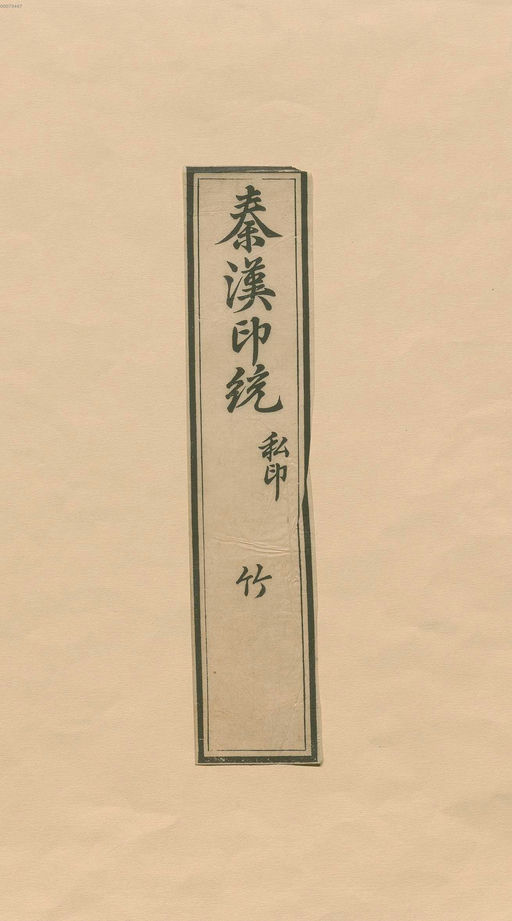 00079447
秦漢印統
私印
竹